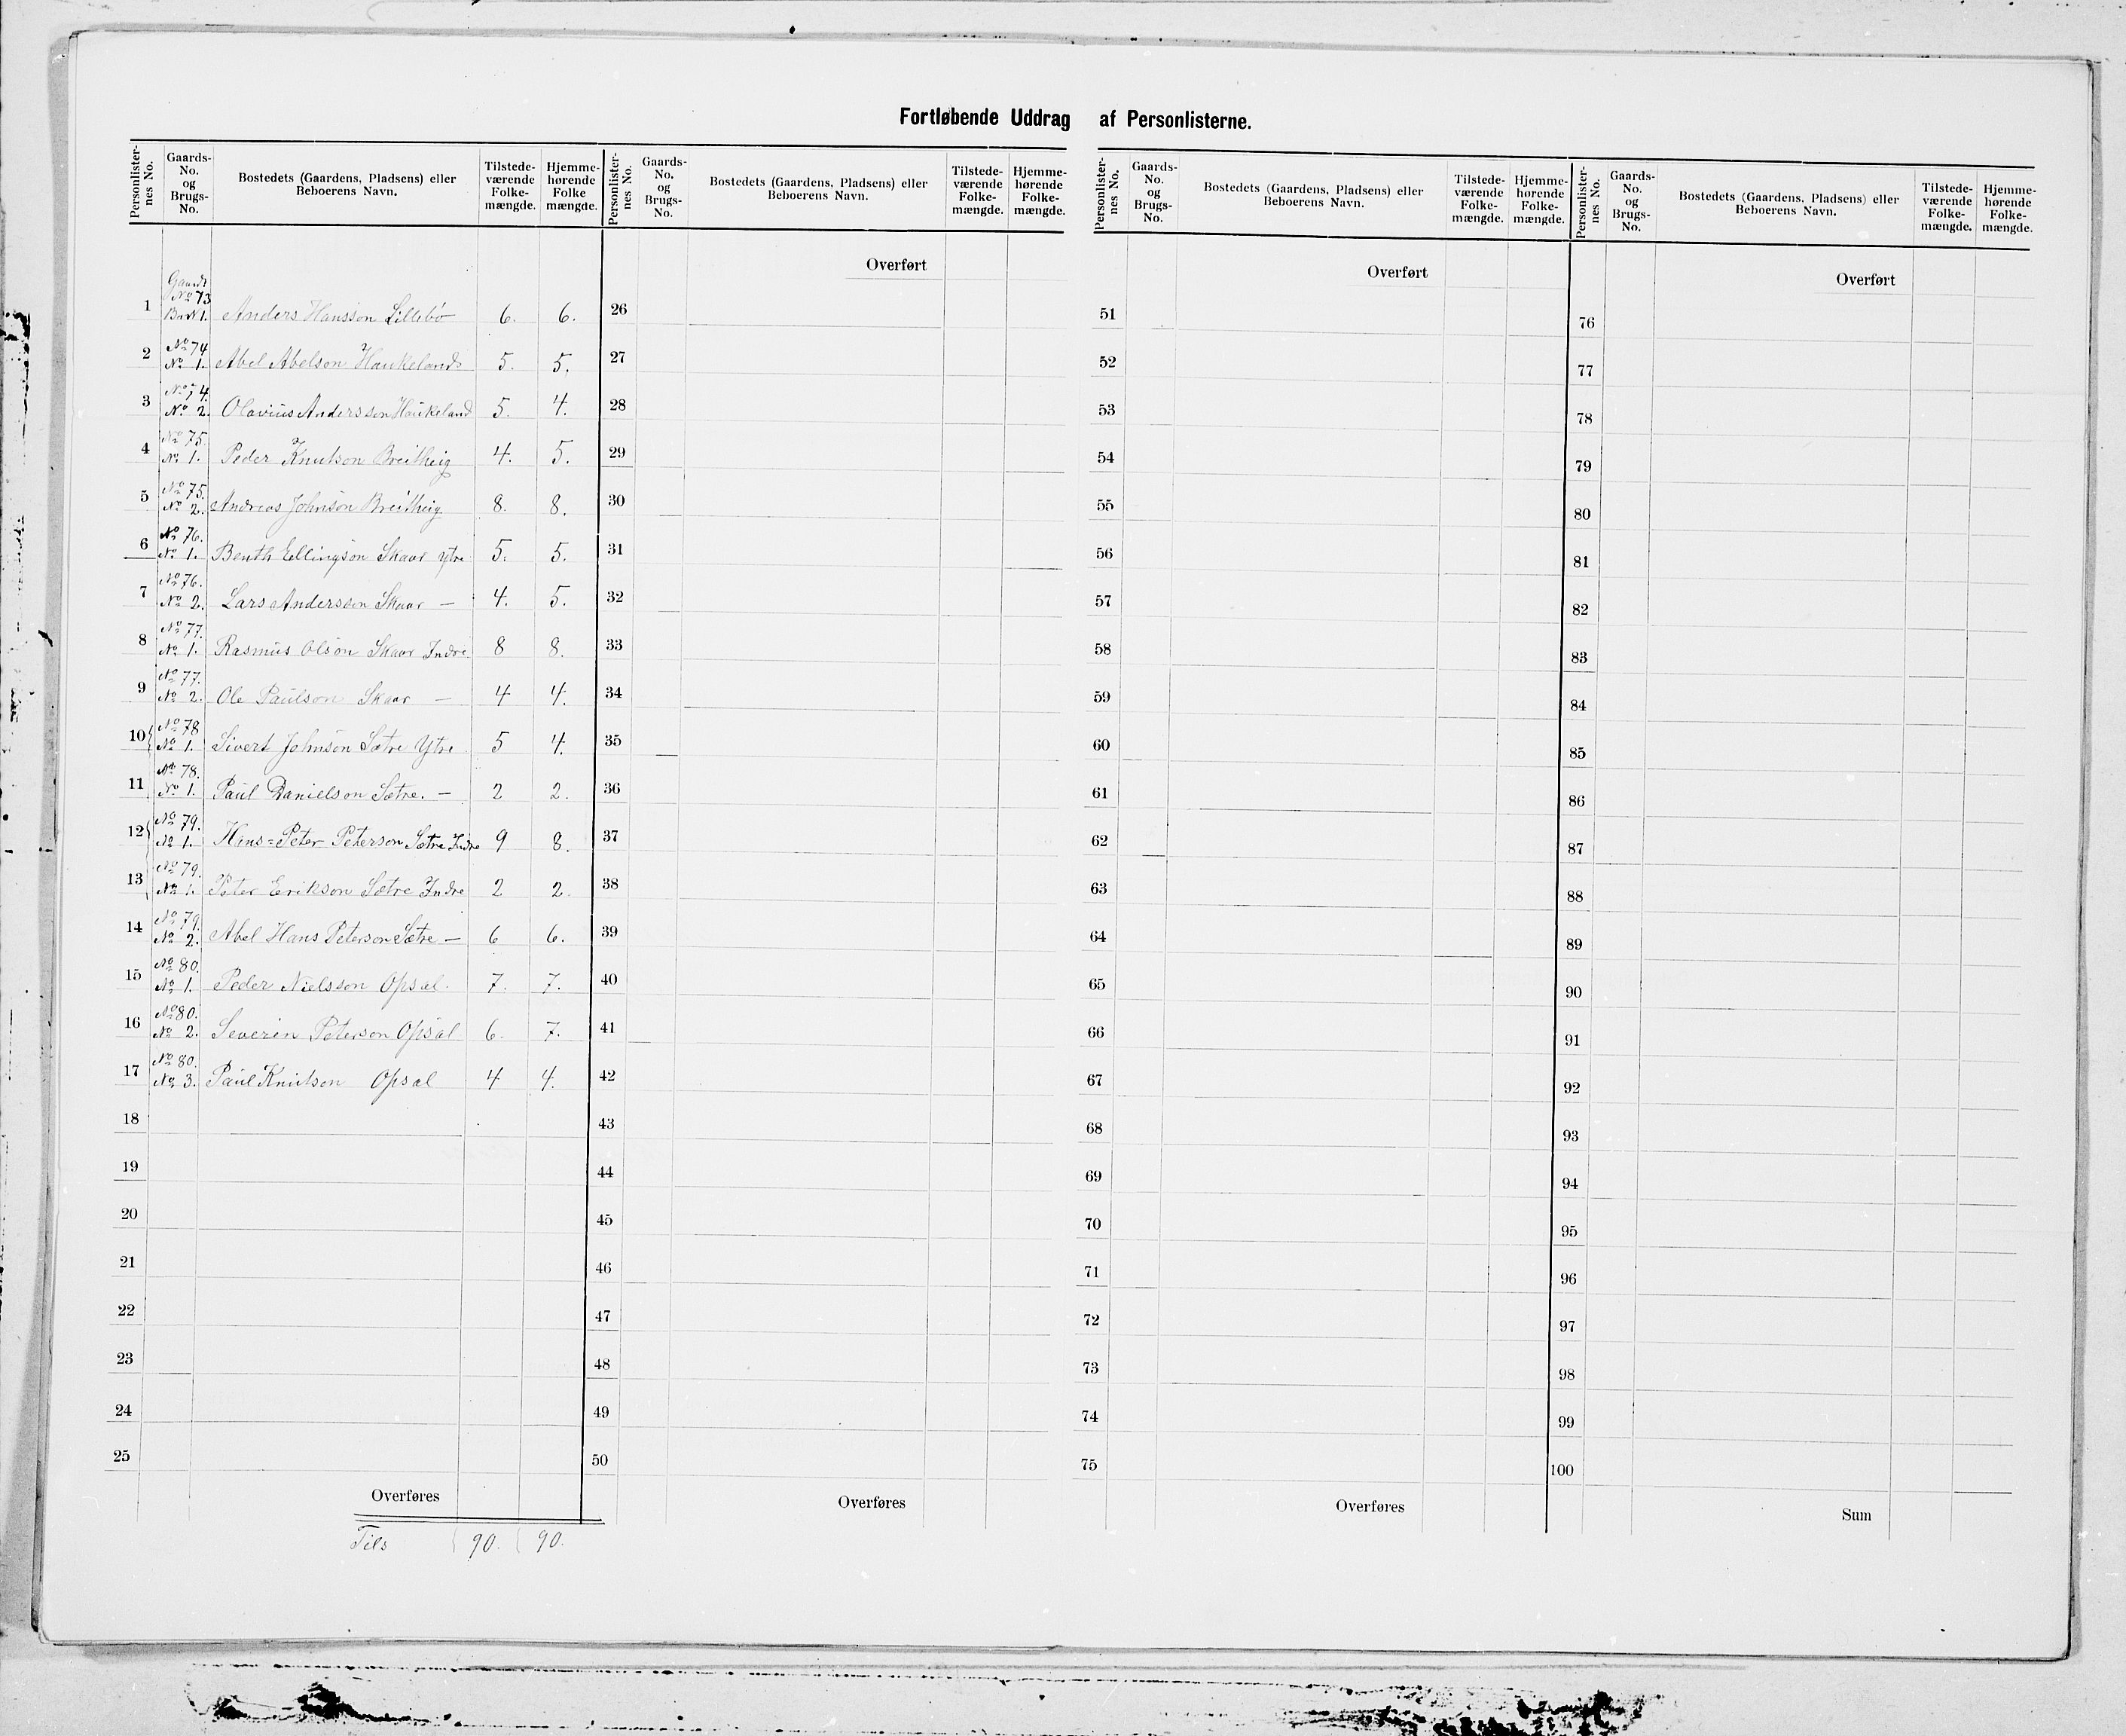 Fortløbende Uddrag af Personlisterne.
Personlister-nes No. Gaards-No. og Brugs-No. Bostedets (Gaardens, Pladsens) eller Beboerens Navn. Tilstede-værende Folke-mængde. Hjemme-hørende Folke mængde.
Gaards No 73
1 Br. N 1. Anders Hansson Lillebø 6. 6.
No 74
2 No 1. Abel Abelson Haukeland 5. 5.
No 74.
3 No 2. Olavius Andersson Haukeland 5. 4.
No 75.
4 No 1. Peder Knutson Breitheig 4. 5.
No 75.
5 No 2. Andreas Johnson Breitheig 8. 8.
No 76.
6 No 1. Benth Ellingson Skaar ytre 5. 5.
No 76.
7 No 2. Lars Andersson Skaar — 4. 5.
No 77.
8 No 1. Rasmus Olson Skaar Indre 8 8.
No 77.
9 No 2. Ole Paulson Skaar — 4 4.
No 78
10 No 1. Sivert Johnson Sætre Ytre 5 4.
No 78.
11 No 1. Paul Danielson Sætre. — 2 2.
No 79.
12 No 1. Hans=Peter Peterson Sætre Indre 9 8.
No 79.
13 No 1. Peter Erikson Sætre Indre 2 2.
No 79.
14 No 2. Abel Hans Peterson Sætre — 6 6.
No 80.
15 No 1. Peder Nielsson Opsal. 7. 7.
No 80.
16 No 2. Severin Peterson Opsal 6. 7.
No 80.
17 No 3. Paul Knutson Opsal 4 4.
18
19
20
21
22
23
24
25
Overføres
Tils 90. 90.
Personlister-nes No. Gaards-No. og Brugs-No. Bostedets (Gaardens, Pladsens) eller Beboerens Navn. Tilstede-værende Folke-mængde. Hjemme-hørende Folke-mængde.
Overført
26
27
28
29
30
31
32
33
34
35
36
37
38
39
40
41
42
43
44
45
46
47
48
49
50
Overføres
Personlister-nes No. Gaards-No. og Brugs-No. Bostedets (Gaardens, Pladsens) eller Beboerens Navn. Tilstede-værende Folke-mængde. Hjemme-hørende Folke-mængde.
Overført
51
52
53
54
55
56
57
58
59
60
61
62
63
64
65
66
67
68
69
70
71
72
73
74
75
Overføres
Personlister-nes No. Gaards-No. og Brugs-No. Bostedets (Gaardens, Pladsens) eller Beboerens Navn. Tilstede-værende Folke-mængde. Hjemme-hørende Folke-mængde.
Overført
76
77
78
79
80
81
82
83
84
85
86
87
88
89
90
91
92
93
94
95
96
97
98
99
100
Sum